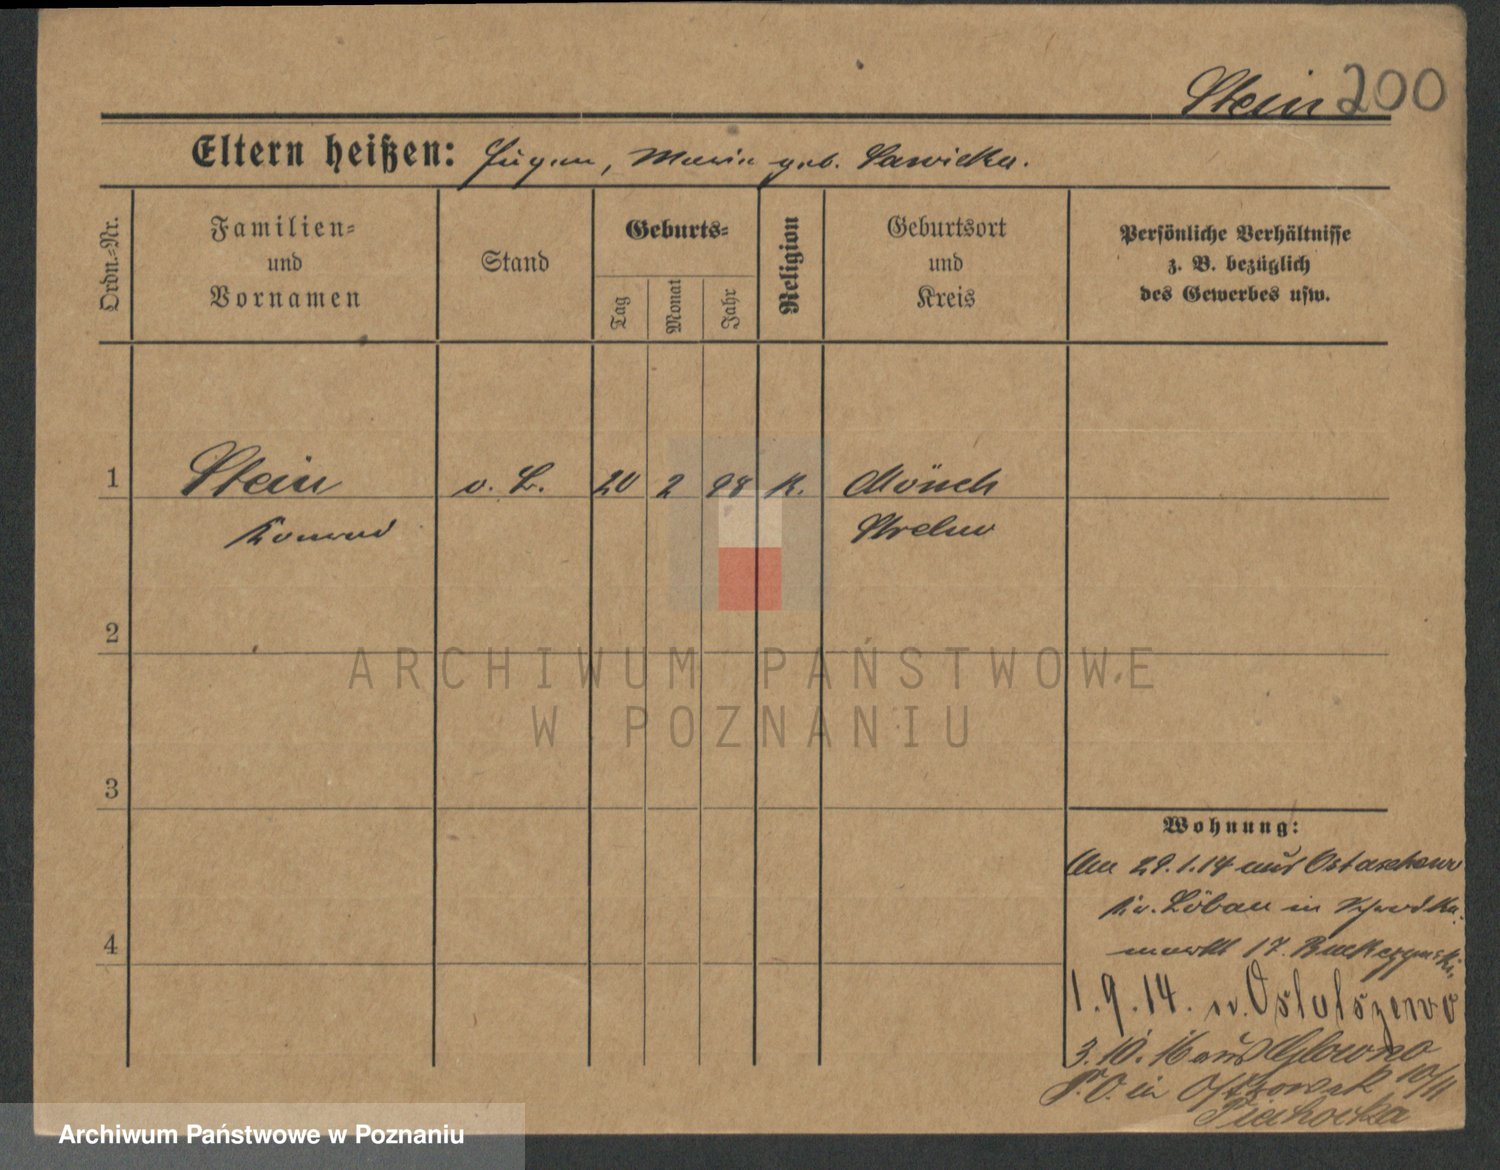 Stein 200
Eltern heißen: Eugen, Maria geb. Sawicka.
Ordn.-Nr.
Familien-
und
Vornamen
Stand
Geburts-
Tag
Monat
Jahr
Religion
Geburtsort
und
Kreis
Persönliche Verhältnisse
z. B. bezüglich
des Gewerbes usw.
1 Stein v. L. 20 2 98 K. Mönch
Konrad Strelno
2
3
4
Wohnung:
Am 29.1.14 aus
Kr. Löbau in
markt 17.
1.9.14. n. Ostatszewo
3.10.16 aus Glowno
P. O. in 10/11
Piechocka
ARCHIWUM PAŃSTWOWE
W POZNANIU
Archiwum Państwowe w Poznaniu